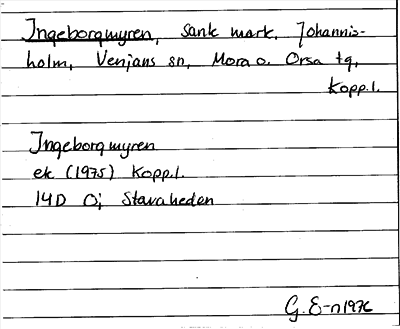 Ingeborgmyren, sank mark, Johannis-
holm, Venjans sn, Mora o. Orsa tg,
Kopp.l.
Ingeborgmyren
ek (1975) Kopp.l.
14D Ö; Stavaheden
G. E-n 1976